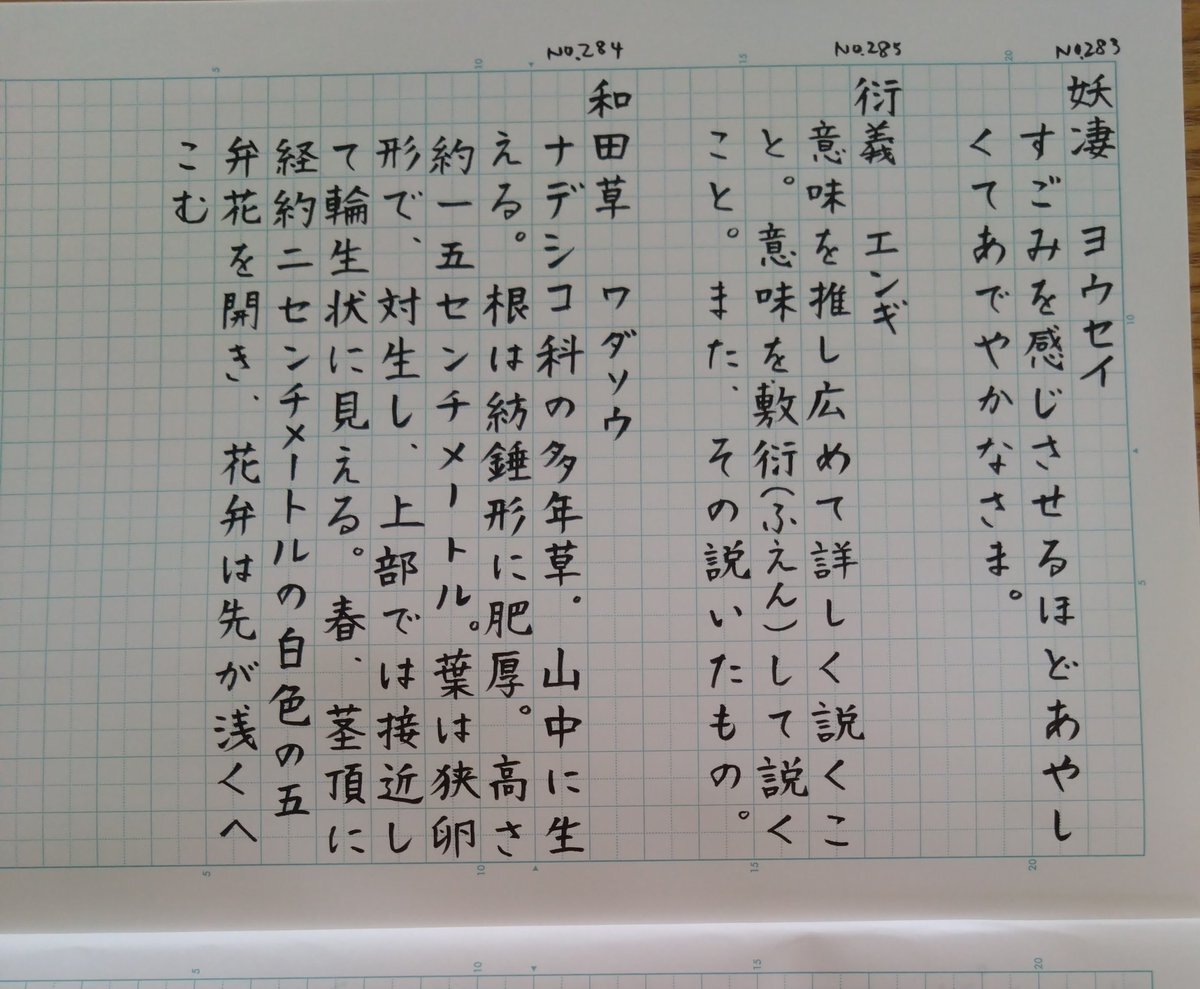 NO.283
妖凄 ヨウセイ
すごみを感じさせるほどあやし
くてあでやかなさま。
NO.285
衍義 エンギ
意味を推し広めて詳しく説くこ
と。意味を敷衍(ふえん)して説く
こと。また、その説いたもの。
NO.284
和田草 ワダソウ
ナデシコ科の多年草。山中に生
える。根は紡錘形に肥厚。高さ
約一五センチメートル。葉は狭卵
形で、対生し、上部では接近し
て輪生状に見える。春、茎頂に
経約二センチメートルの白色の五
弁花を開き、花弁は先が浅くへ
こむ